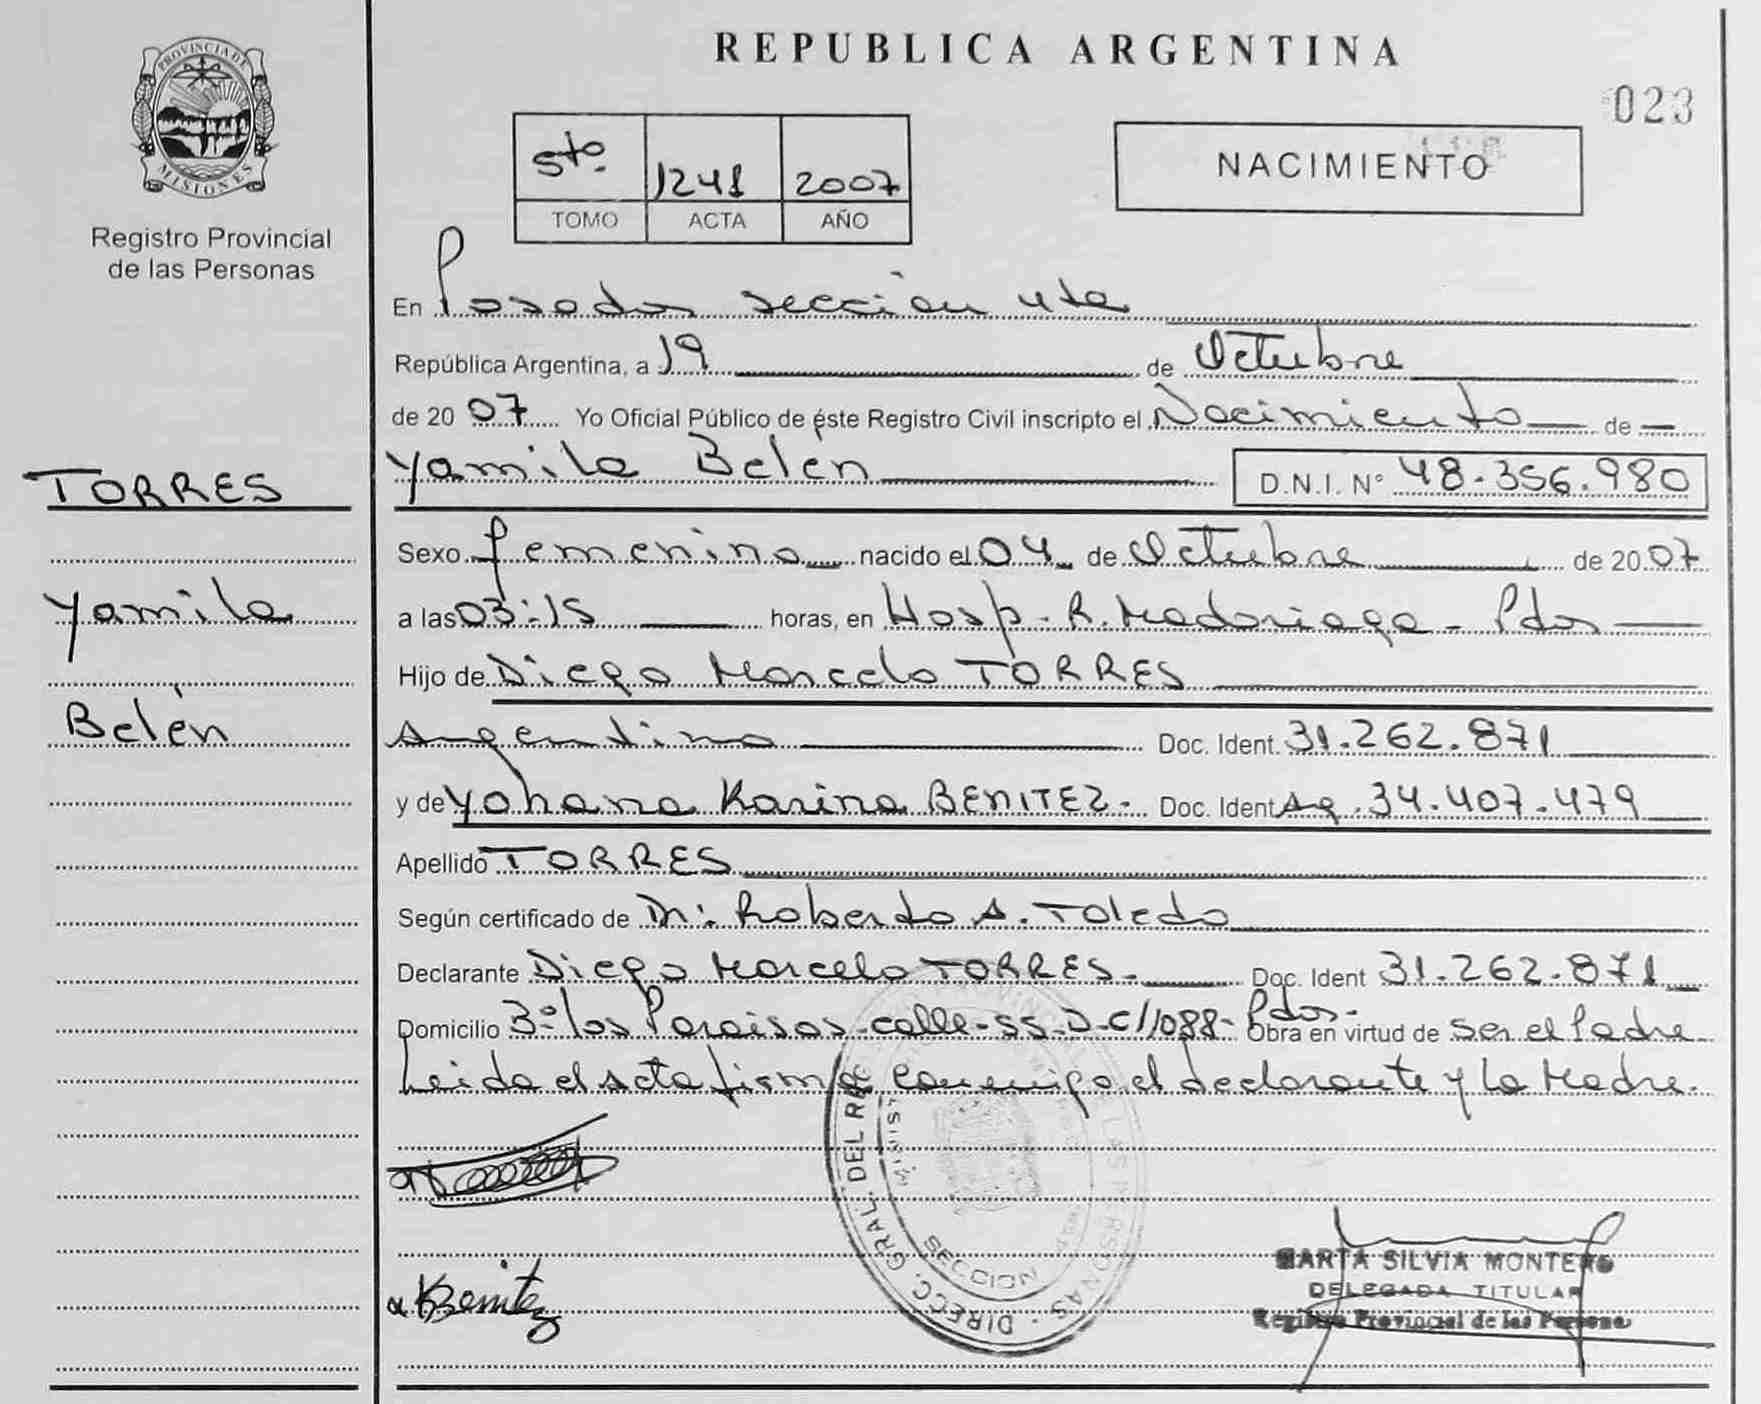 PROVINCIA DE
MISIONES
Registro Provincial
de las Personas
TORRES
Yamila
Belén
REPUBLICA ARGENTINA
023
5to. 1241 2007
TOMO ACTA AÑO
NACIMIENTO
En Posadas sección 4ta
República Argentina, a 19 de Octubre
de 2007 Yo Oficial Público de éste Registro Civil inscripto el Nacimiento de
Yamila Belén D.N.I. N° 48.356.980
Sexo femenino nacido el 04 de Octubre de 2007
a las 03:15 horas, en Hosp. R. Madariaga - Pdas
Hijo de Diego Marcelo TORRES
Argentino Doc. Ident. 31.262.871
y de Yohana Karina BENITEZ. Doc. Ident Ag. 34.407.479
Apellido TORRES
Según certificado de Dr: Roberto A. Toledo
Declarante Diego Marcelo TORRES. Doc. Ident 31.262.871
Domicilio 3° los Paraisos - calle - SS. D. C/1088 - Pdas. Obra en virtud de ser el Padre
Leida el acta firma conmigo el declarante y la Madre.
Benitez
DIRECC. GRAL. DEL REG
SECCION
MARTA SILVIA MONTERO
DELEGADA TITULAR
Registro Provincial de las Personas